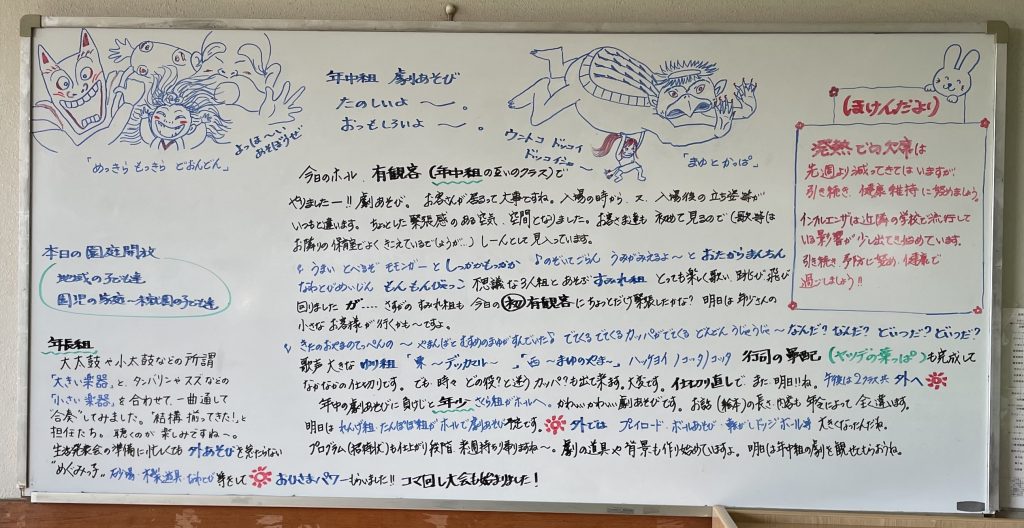 年中組 劇あそび
たのしいよ〜。
おっもしろいよ〜。
「めっきら もっきら どおんどん」
よっほ〜い
あそぼうぜ
ウントコ ドッコイ
ドッコイショ〜
「まゆとかっぱ」
(ほけんだより)
発熱での欠席は
先週より減ってきてはいますが
引き続き、健康維持に努めましょう。
インフルエンザは近隣の学校で流行して
いる影響が少し出てき始めています。
引き続き 予防に努め、健康で
過ごしましょう!!
今日のホール、有観客(年中組の互いのクラス)で
やりましたー!! 劇あそび。お客さんが居るって大事ですね。入場の時から、又、入場後の立ち姿等が
いつもと違います。ちょっとした緊張感のある空気、空間となりました。お客さま達も 初めて見るので(歌等は
お隣りの保育室でよく きこえているでしょうが、) しーんとして見入っています。
♪うまい とべるぞ モモンガーと しっかかもっかか ♪のぞいてごらん うみがみえるよ〜と おたからまんちん
なわとびめいじん もんもんびゃっこ 不思議な3人組とあそぶ すみれ組 とっても楽しく歌い、跳び 飛び
回りました が…. さすがの すみれ組も 今日の 初 有観客に ちょっとだけ緊張したかな? 明日は 年少さんの
小さな お客様が行くかも〜ですよ。
♪きたのおやまのてっぺんの〜 やまんばと むすめのまゆが すんでいた♪ でてくる でてくる カッパがでてくる どんどん うじゃうじゃ〜 なんだ? なんだ? どいつだ? どいつだ?
歌声 大きな ゆり組 「東〜デッカビル〜」、「西〜まゆのやま〜」、ハッケヨイ ノコッタ ノコッタ 行司の軍配(ヤツデの葉っぱ)も完成して
なかなかの仕切りです。でも、時々 どの役? と迷うカッパ?も出て来ます。大変です。仕切り直しで また 明日!!ね。午後は2クラス共 外へ
年中の劇あそびに負けじと 年少 さくら組がホールへ。かわいいかわいい劇あそびです。お話(絵本)の長さ・内容も 年令によって 全く違います。
明日は れんげ組・たんぽぽ組がホールで劇あそび予定です。 外では プレイロード、ボールあそび・転がしドッジボール等 大きくなったんだね。
プログラム(招待状)も仕上がり段階、来週持ち帰りますね〜。劇の道具や背景も作り始めていますよ。明日は年中組の劇を観せてもらおうね。
本日の園庭開放
地域の子ども達
園児の家庭〜未就園の子ども達
年長組
大太鼓や小太鼓などの所謂
「大きい楽器」と、タンバリンやスズなどの
「小さい楽器」を合わせて、一曲通して
“合奏”してみました。“結構 揃ってきた!”と
担任たち。聴くのが 楽しみですね〜。
生活発表会の準備に忙しくても 外あそびを 忘れない
“めぐみっ子”。砂場・木製道具・なわとび 等をして
おひさまパワーもらいました!! コマ回し大会も始まりました!